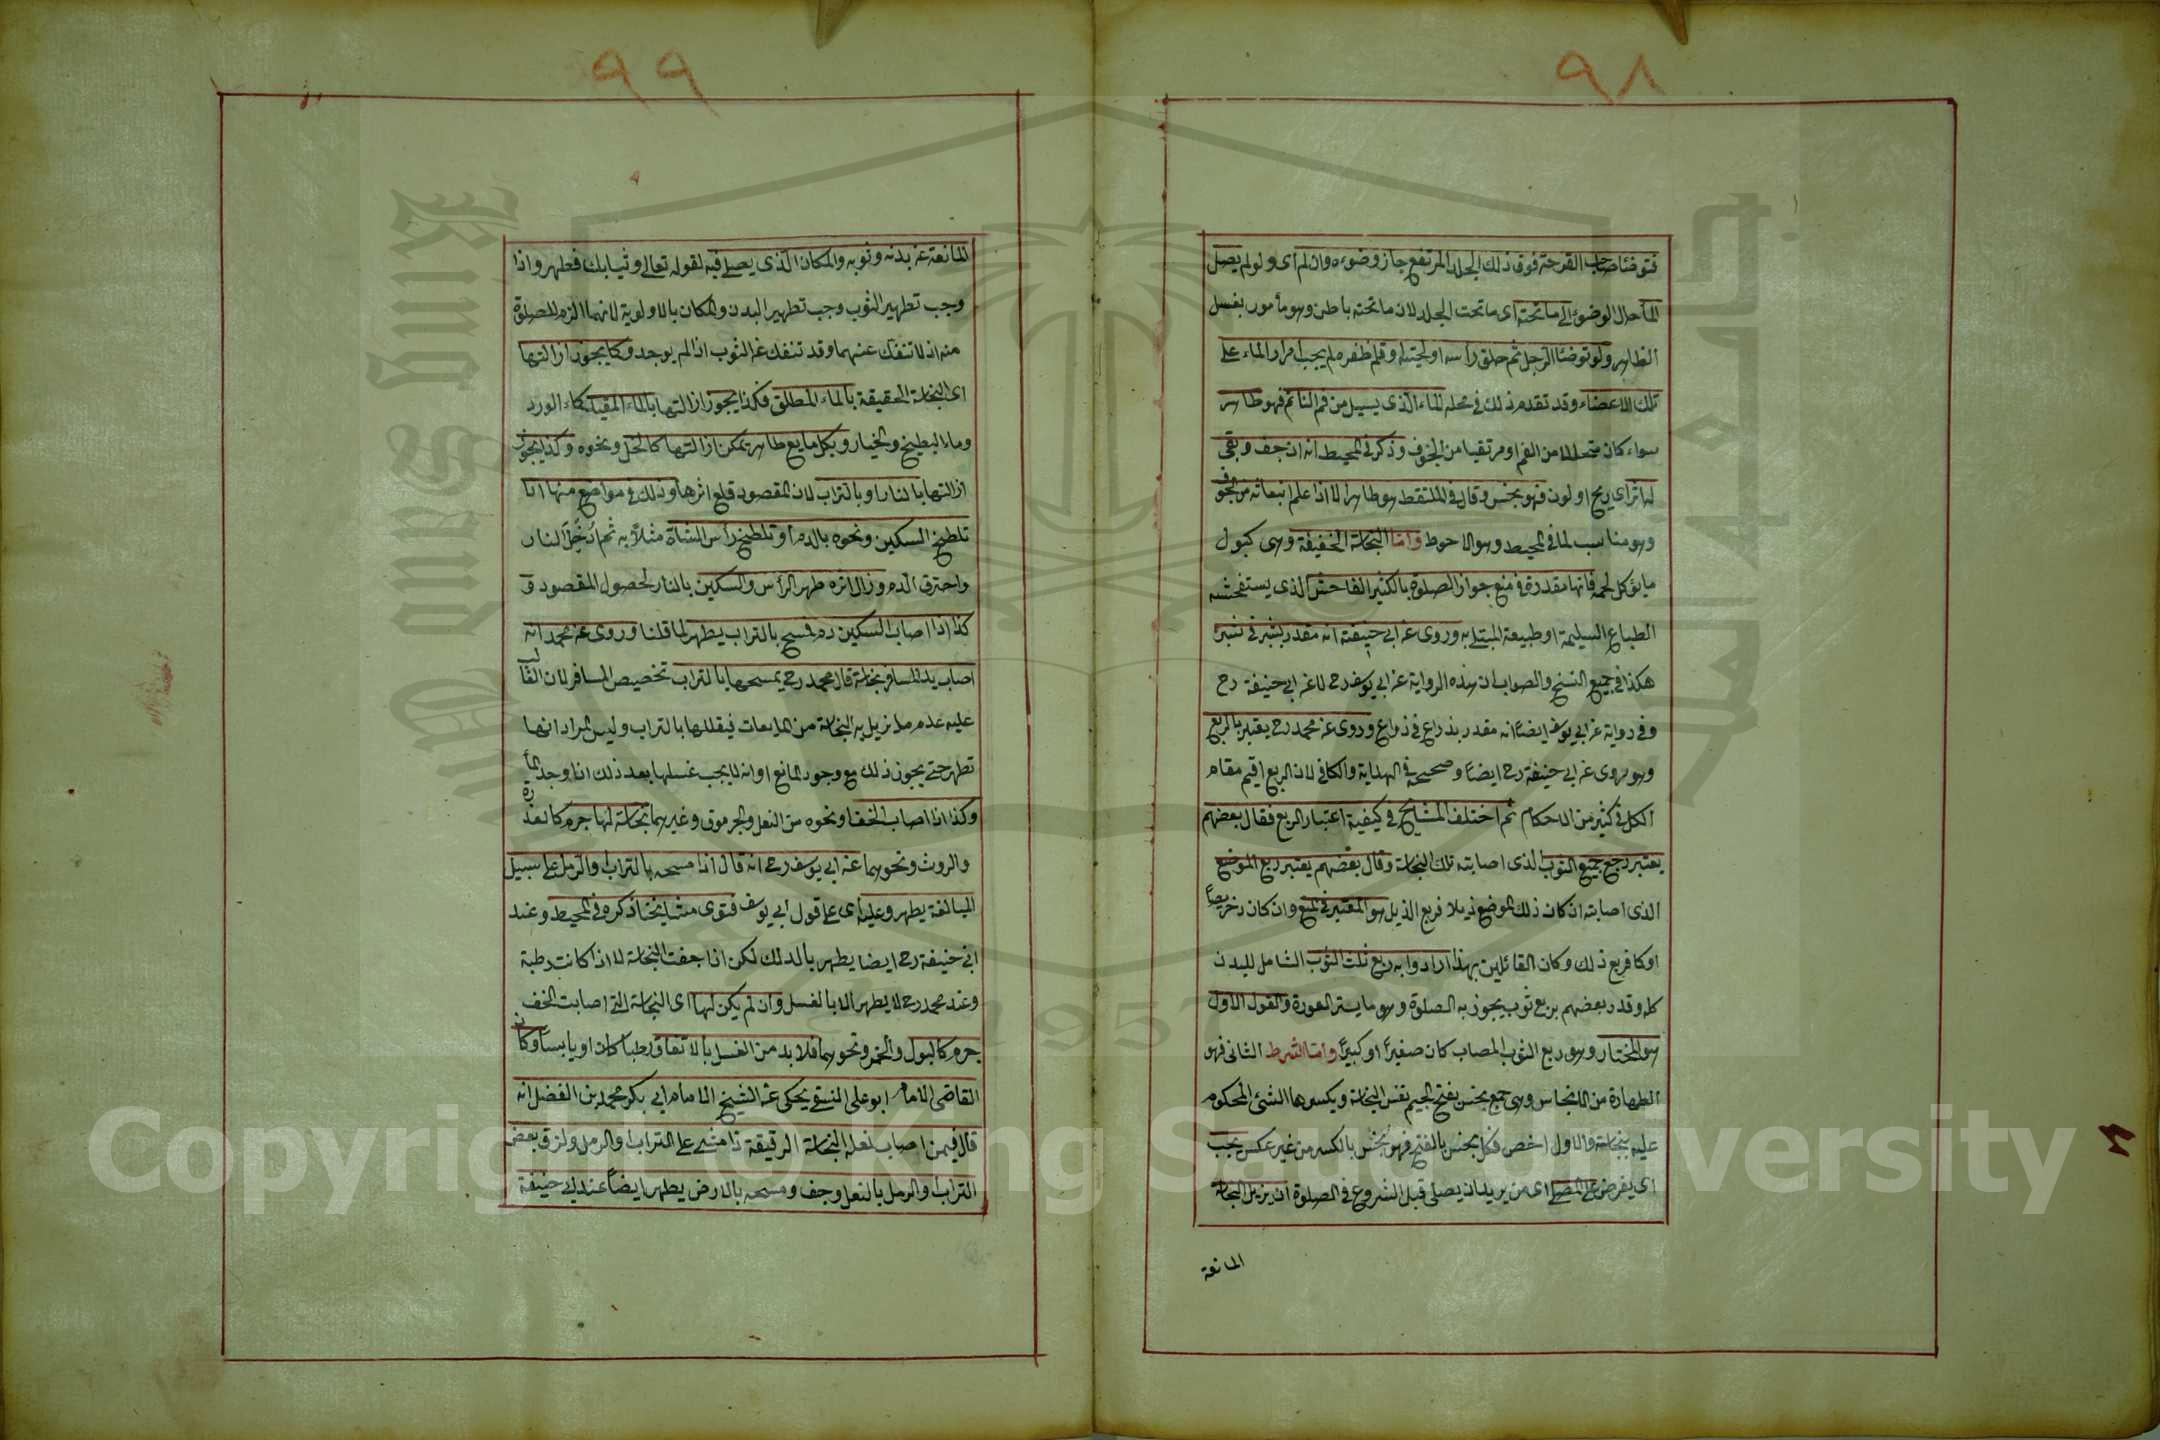 ٩٨
فتوضأ صاحب القرحة فوق ذلك الجلد المرتفع جاز وضوءه وان لم اى ولو لم يصل
الماء حال الوضوء الى ما تحته اى ما تحت الجلد لان ما تحته باطن وهو مأمور بغسل
الظاهر ولو توضأ الرجل ثم حلق رأسه او لحيته او قلم ظفره لم يجب امرار الماء على
تلك الاعضاء وقد تقدم ذلك فى محله الماء الذى يسيل من فم النائم فهو طاهر
سواء كان متحللا من الفم او مرتقيا من الجوف وذكر فى المحيط انه ان جف وبقى
له اثر اى ريح او لون فهو نجس وقال فى الملتقط هو طاهر الا اذا علم انبعاثه من الجوف
وهو مناسب لما فى المحيط وهو الاحوط واما النجاسة الخفيفة وهى كبول
ما يؤكل لحمه فانها مقدرة فى منع جواز الصلوة بالكثير الفاحش الذى يستفحشه
الطباع السليمة او طبيعة المبتلى به وروى عن ابى حنيفة انه مقدر بشبر فى شبر
هكذا فى جميع النسخ والصواب ان هذه الرواية عن ابى يوسف رح لا عن ابى حنيفة رح
وفى رواية عن ابى يوسف ايضا انه مقدر بذراع فى ذراع وروى عن محمد رح يعتبر بالربع
وهو مروى عن ابى حنيفة رح ايضا وصححه فى الهداية والكافى لان الربع اقيم مقام
الكل فى كثير من الاحكام ثم اختلف المشايخ فى كيفية اعتبار الربع فقال بعضهم
يعتبر ربع جميع الثوب الذى اصابته تلك النجاسة وقال بعضهم يعتبر ربع الموضع
الذى اصابته ان كان ذلك الموضع ذيلا فربع الذيل هو المعتبر فى المنع وان كان دخريصا
او كما فربع ذلك وكان القائلين بهذا ارادوا به ربع ثلث الثوب الشامل للبدن
كله وقدر بعضهم بربع ثوب يجوز به الصلوة وهو ما يستر العورة والقول الاول
هو المختار وهو ربع الثوب المصاب كان صغيرا او كبيرا واما الشرط الثانى فهو
الطهارة من الانجاس وهى جمع نجس بفتح الجيم نفس النجاسة وبكسرها الشئ المحكوم
عليه بنجاسة والاول اخص فكل نجس بالفتح فهو نجس بالكسر من غير عكس يجب
اى يفرض على المصلى اى من يريد ان يصلى قبل الشروع فى الصلوة ان يزيل النجاسة
المانعة
٩٩
المانعة عن بدنه وثوبه والمكان الذى يصلى فيه لقوله تعالى وثيابك فطهر واذا
وجب تطهير الثوب وجب تطهير البدن والمكان بالاولوية لانهما الزم للصلوة
منه اذ لا تنفك عنهما وقد تنفك عن الثوب اذا لم يوجد وكما يجوز ازالتها
اى النجاسة الحقيقة بالماء المطلق فكذا يجوز ازالتها بالماء المقيد كماء الورد
وماء البطيخ والخيار وبكل مايع طاهر يمكن ازالتها كالخل ونحوه وكذا يجوز
ازالتها بالنار او بالتراب لان المقصود قلع اثرها وذلك فى مواضع منها اذا
تلطخ السكين ونحوه بالدم او تلطخ رأس الشاة مثلا به ثم ادخل النار
واحترق الدم وزال اثره طهر الرأس والسكين بالنار لحصول المقصود و
كذا اذا اصاب السكين دم فمسح بالتراب يطهر لما قلنا وروى عن محمد انه
اصاب يد المسافر نجاسة قال محمد رح يمسحها بالتراب تخصيص المسافر لان الغالب
عليه عدم ما يزيل به النجاسة من المايعات فيقللها بالتراب وليس المراد انها
تطهر حتى يجوز ذلك مع وجود المانع او انه لا يجب غسلها بعد ذلك اذا وجد الماء
وكذا اذا اصاب الخف او نحوه من النعل والجرموق وغيرهما نجاسة لها جرم كالعذرة
والروث ونحوهما عن ابى يوسف رح انه قال اذا مسحه بالتراب والرمل على سبيل
المبالغة يطهر وعليه اى على قول ابى يوسف فتوى مشايخنا ذكره فى المحيط وعند
ابى حنيفة رح ايضا يطهر بالدلك لكن اذا جفت النجاسة لا اذا كانت رطبة
وعند محمد رح لا يطهر الا بالغسل وان لم يكن لها اى النجاسة التى اصابت الخف
جرم كالبول والخمر ونحوهما فلا بد من الغسل بالاتفاق رطبا كان او يابسا وكان
القاضى الامام ابو على النسفى يحكى عن الشيخ الامام ابى بكر محمد بن الفضل انه
قال فيمن اصاب نعله النجاسة الرقيقة ثم مشى على التراب والرمل ولزق بعض
التراب والرمل بالنعل وجف ومسحه بالارض يطهر ايضا عند ابى حنيفة
Copyright © King Saud University
King Saud University
1957